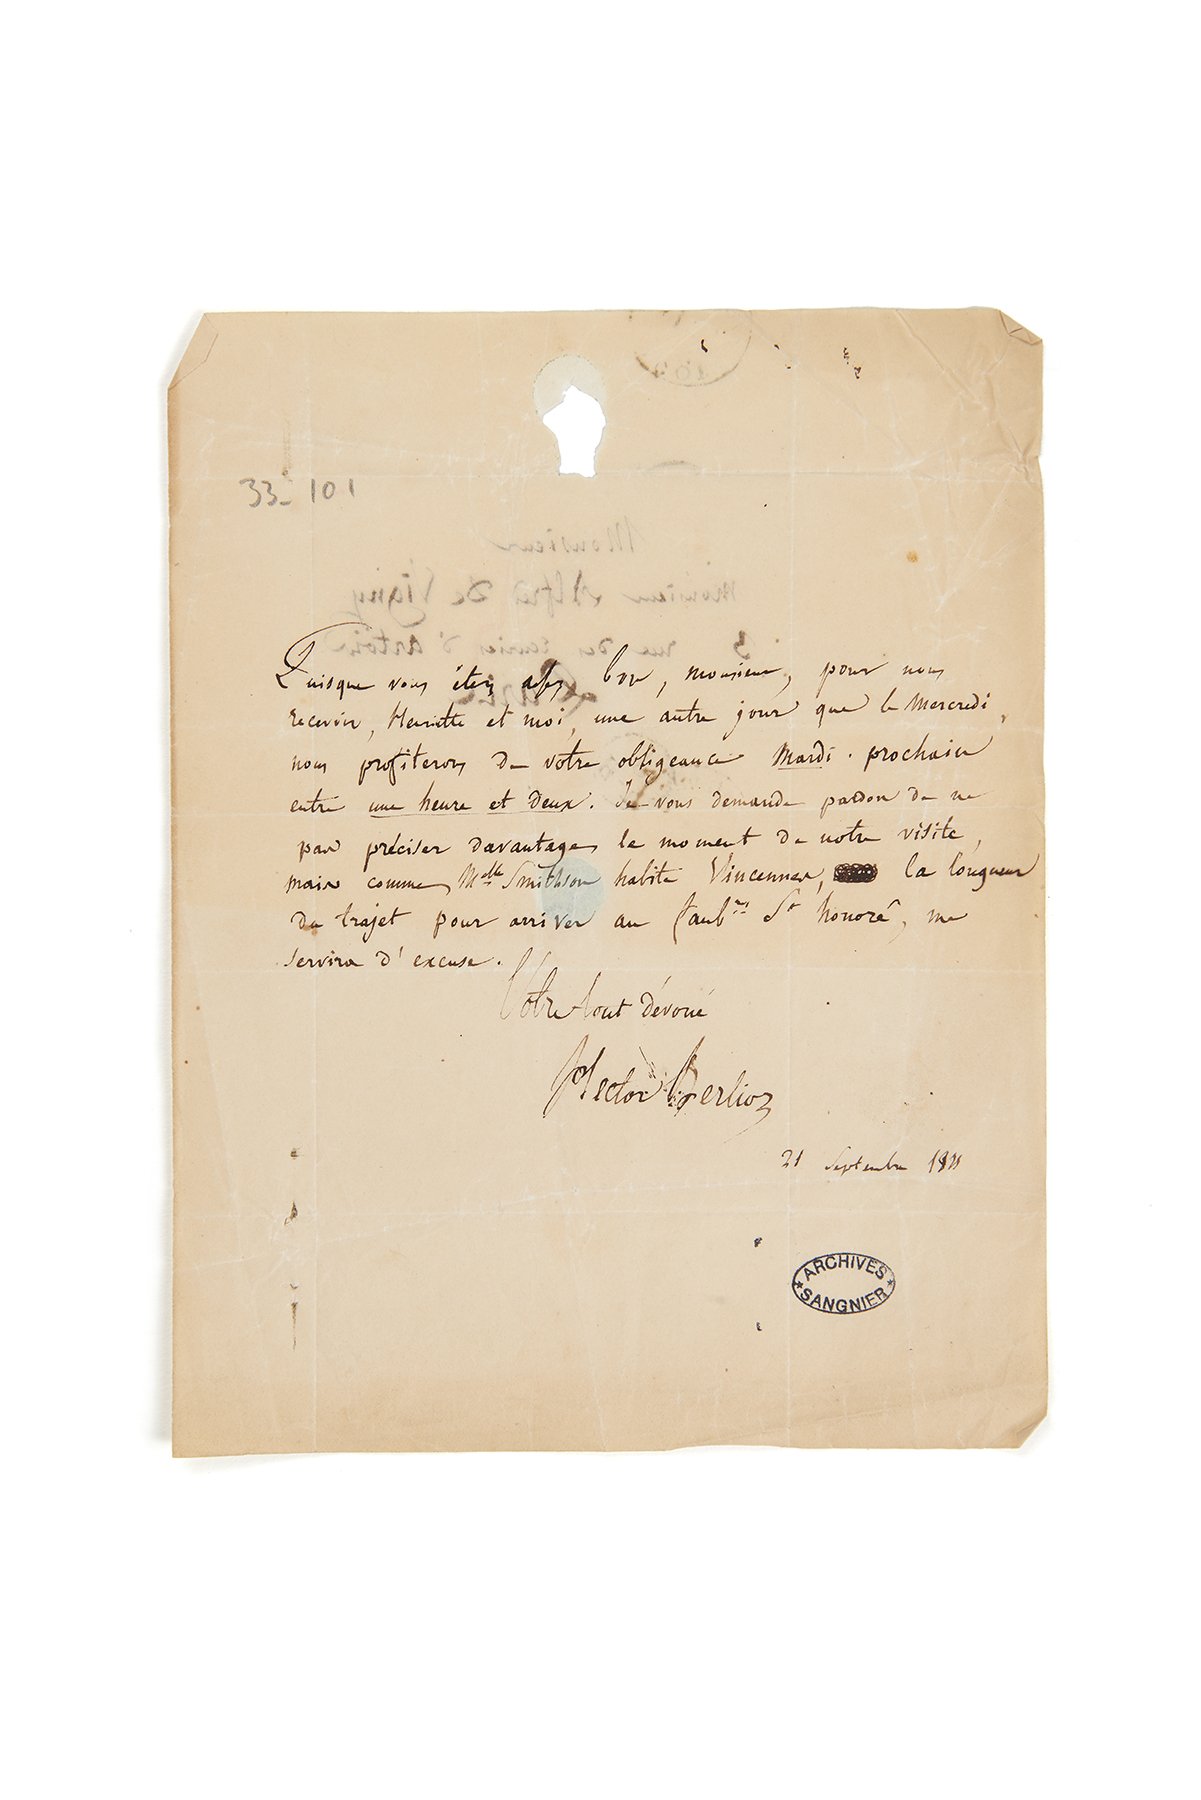 33_101
Monsieur
Monsieur Alfred de Vigny
3 rue des Ecuries d'Artois
Puisque vous êtes assez bon, monsieur, pour nous
recevoir, Henriette et moi, une autre jour que le Mercredi,
nous profiterons de votre obligeance Mardi prochain
entre une heure et deux. Je vous demande pardon de ne
pas préciser davantage le moment de notre visite,
mais comme Melle Smithson habite Vincennes, la longueur
du trajet pour arriver au faubrg St honoré, me
servira d'excuse.
Votre tout dévoué
Hector Berlioz
21 Septembre
ARCHIVES
SANGNIER